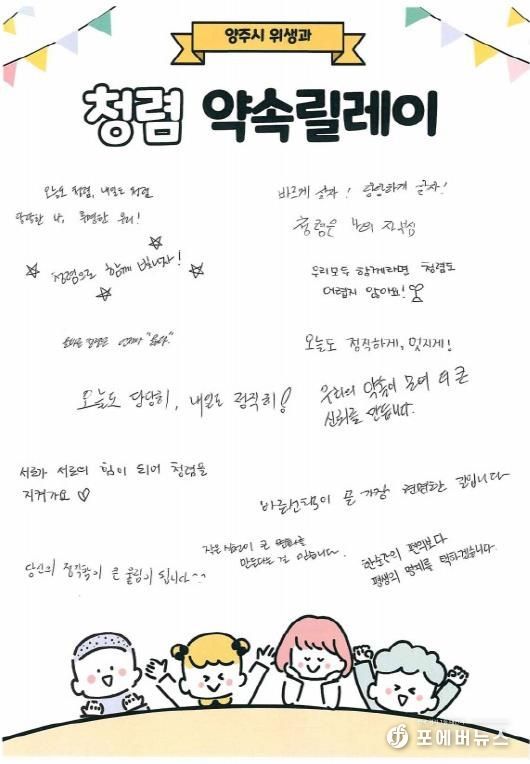 양주시 위생과
청렴 약속릴레이
오늘도 청렴, 내일도 청렴
당당한 나, 투명한 우리!
바르게 살자! 당당하게 살자!
청렴은 나의 자부심
청렴으로 함께 빛나자!
우리모두 함께라면 청렴도
어렵지 않아요!
오늘도 정직하게, 멋지게!
오늘도 당당히, 내일도 정직히!
우리의 약속이 모여 더 큰
신뢰를 만듭니다.
서로가 서로의 힘이 되어 청렴을
지켜가요 ♡
바른선택이 곧 가장 현명한 길입니다
작은 실천이 큰 변화를
만든다는 걸 믿습니다.
한순간의 편의보다
평생의 명예를 택하겠습니다.
당신의 정직함이 큰 울림이 됩니다^^
포에버뉴스